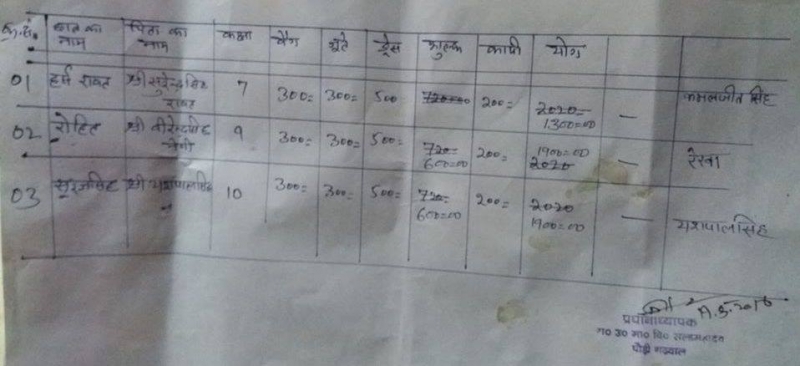 क्र.सं. छात्र का नाम पिता का नाम कक्षा बैग जूते ड्रेस शुल्क कापी योग
01 हर्ष रावत श्री सुरेन्द्र सिंह रावत 7 300= 300= 500 720=00 200= 2020= 1300=00 — कमलजीत सिंह
02 रोहित श्री वीरेन्द्र सिंह नेगी 9 300= 300= 500= 720= 600=00 200= 1900=00 2020 — रेखा
03 सूरज सिंह श्री यशपाल सिंह 10 300= 300= 500= 720= 600=00 200= 2020 1900=00 — यशपाल सिंह
प्रधानाध्यापक
रा0 उ0 मा0 वि0
पौड़ी गढ़वाल